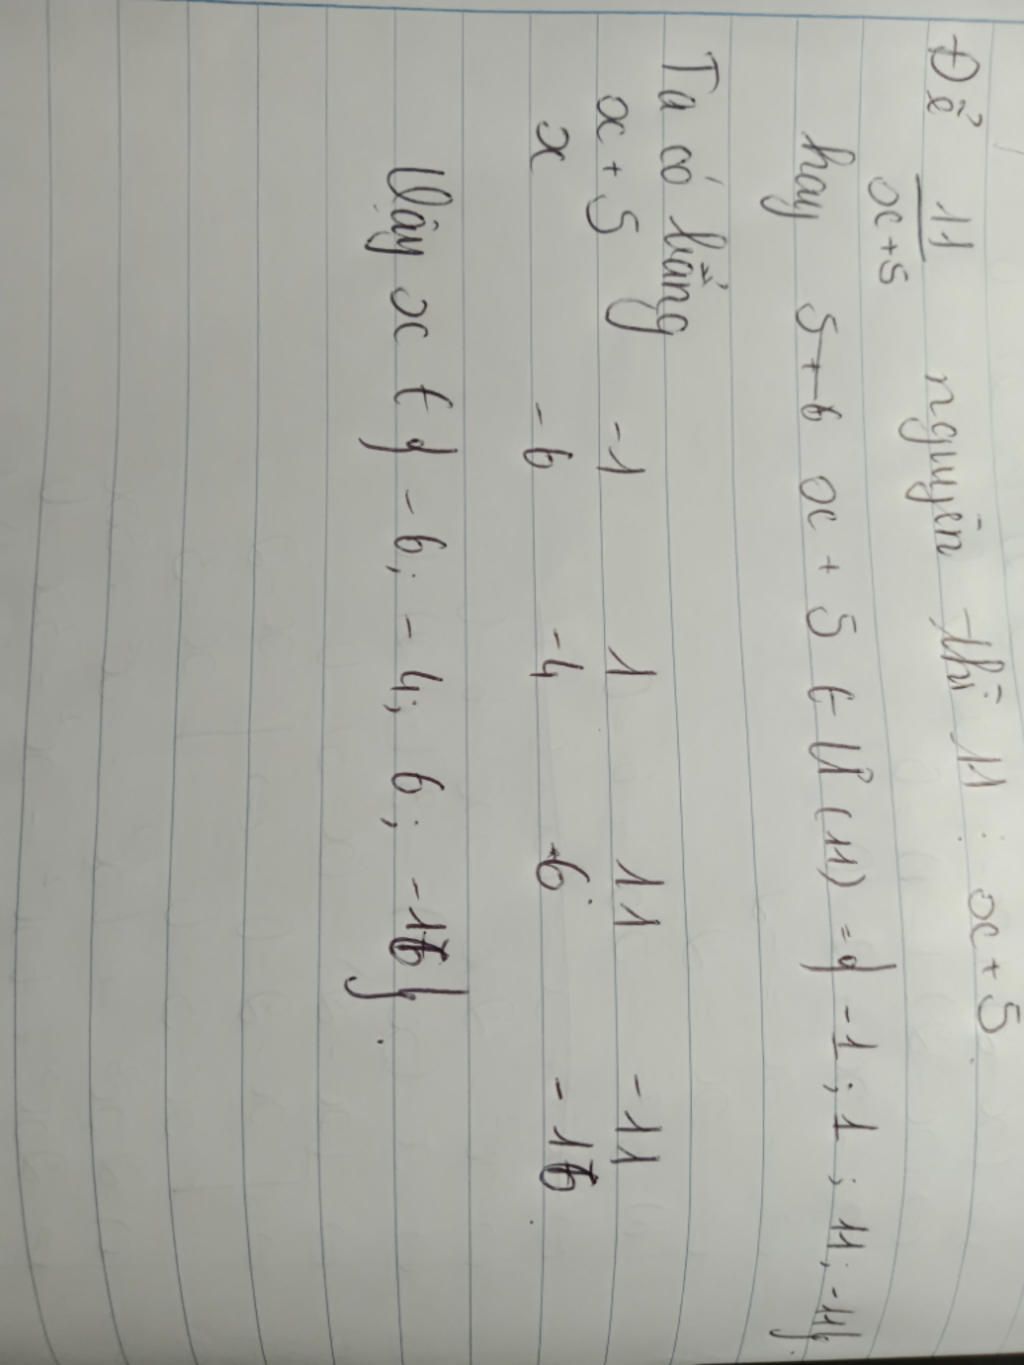 Để 11/x+5 nguyên thì 11 ⋮ x+5
hay 5+6 x+5 ∈ Ư(11) = { -1; 1; 11; -11}.
Ta có bảng
x+5 -1 1 11 -11
x -6 -4 6 -16
Vậy x ∈ { -6; -4; 6; -16}.